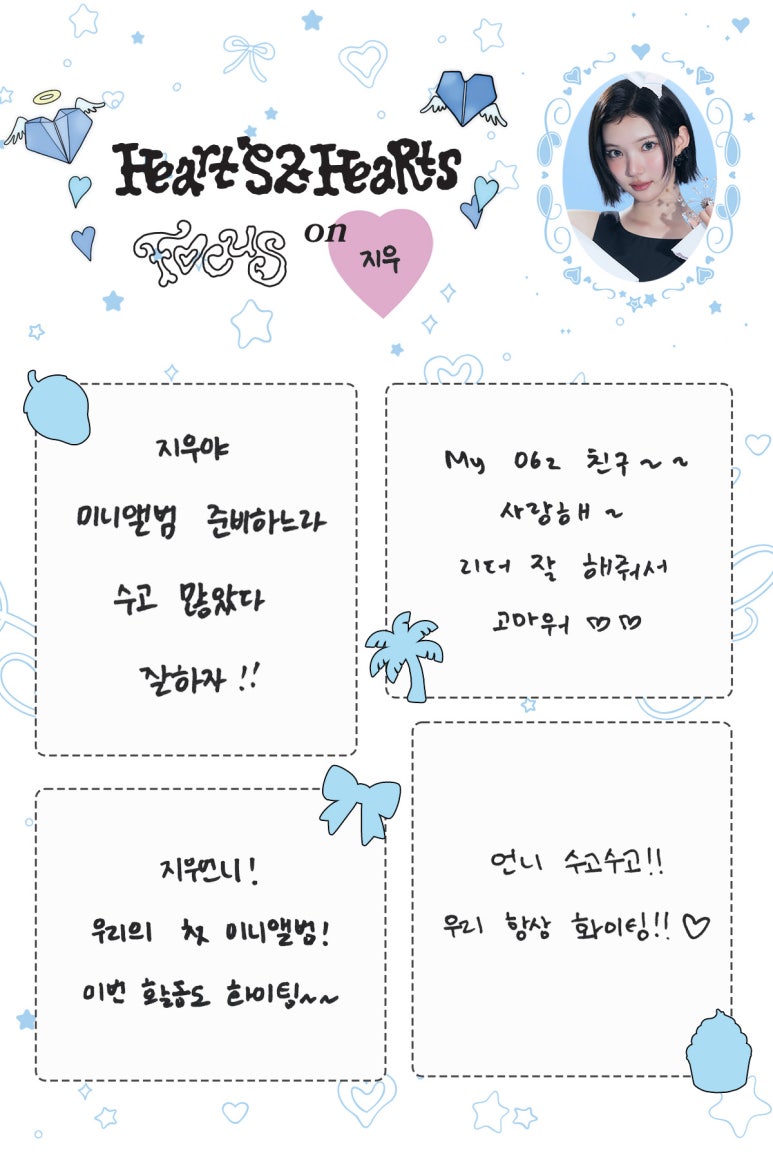 Heart'S2HeaRts
Focus on 지우
지우야
미니앨범 준비하느라
수고 많았다
잘하자 !!
My 06z 친구~~
사랑해~
리더 잘 해줘서
고마워 ♡♡
지우언니!
우리의 첫 미니앨범!
이번 활동도 화이팅~~
언니 수고수고!!
우리 항상 화이팅!! ♡